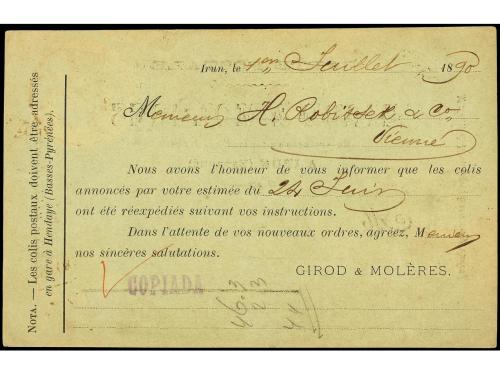 Irun, le 1er Juillet 1890
Messieurs H. Robitsek & Co.
Vienne
Nous avons l'honneur de vous informer que les colis
annoncés par votre estimée du 24 Juin
ont été réexpédiés suivant vos instructions.
Dans l'attente de vos nouveaux ordres, agréez, Messieurs
nos sincères salutations.
GIROD & MOLÈRES.
COPIADA
NOTA. — Les colis postaux doivent être adressés
en gare à Hendaye (Basses-Pyrénées).